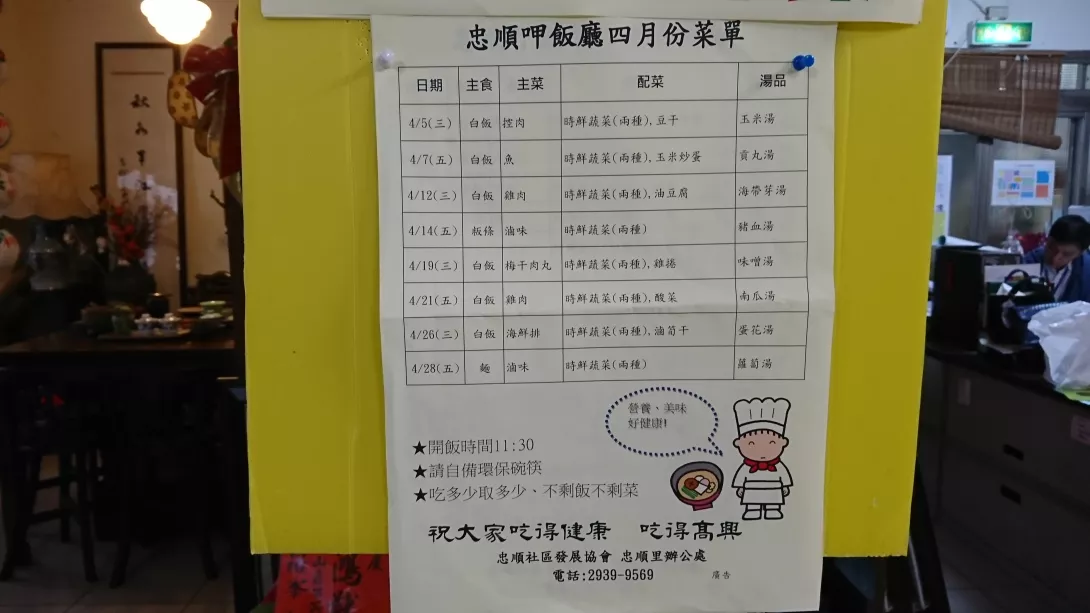 忠順呷飯廳四月份菜單
日期 主食 主菜 配菜 湯品
4/5(三) 白飯 控肉 時鮮蔬菜(兩種),豆干 玉米湯
4/7(五) 白飯 魚 時鮮蔬菜(兩種),玉米炒蛋 貢丸湯
4/12(三) 白飯 雞肉 時鮮蔬菜(兩種),油豆腐 海帶芽湯
4/14(五) 粄條 滷味 時鮮蔬菜(兩種) 豬血湯
4/19(三) 白飯 梅干肉丸 時鮮蔬菜(兩種),雞捲 味噌湯
4/21(五) 白飯 雞肉 時鮮蔬菜(兩種),酸菜 南瓜湯
4/26(三) 白飯 海鮮排 時鮮蔬菜(兩種),滷筍干 蛋花湯
4/28(五) 麵 滷味 時鮮蔬菜(兩種) 蘿蔔湯
營養、美味
好健康!
★開飯時間11:30
★請自備環保碗筷
★吃多少取多少、不剩飯不剩菜
祝大家吃得健康 吃得高興
忠順社區發展協會 忠順里辦公處
電話:2939-9569 廣告